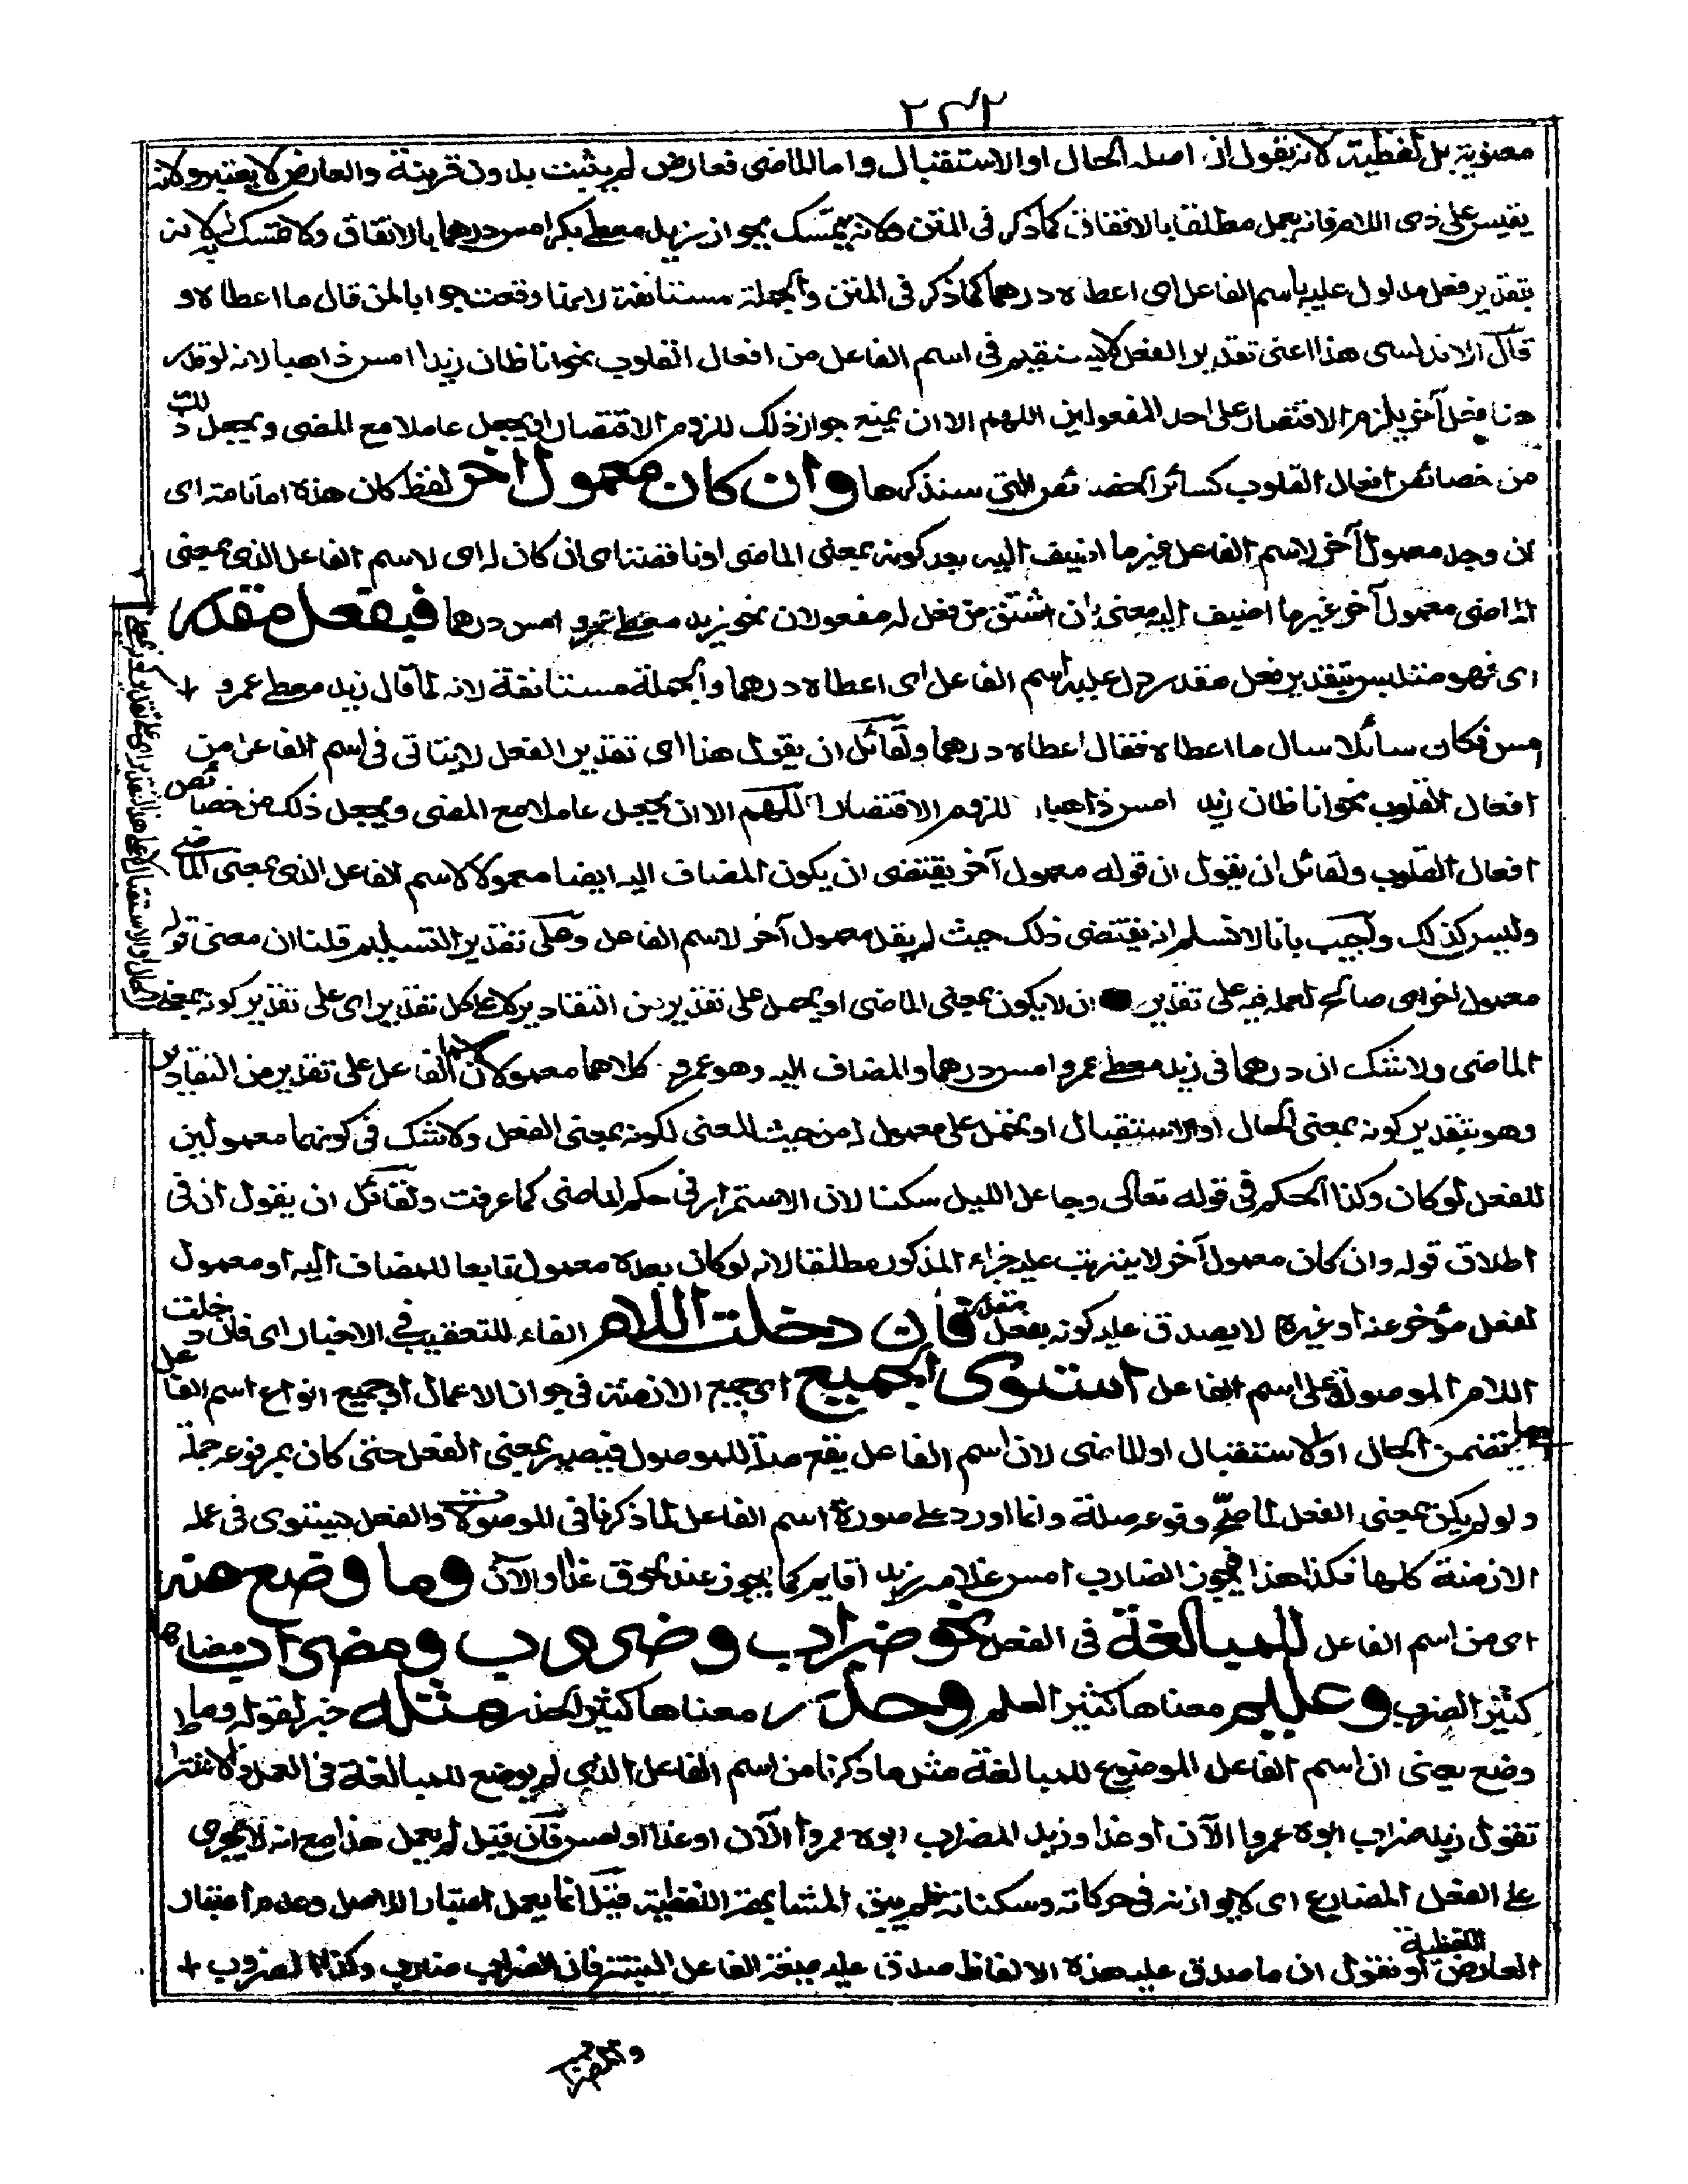 معنوية بل لفظية لانه يقول ان اصله الحال او الاستقبال واما الماضى فعارض لم يثبت بدون قرينة والعارض لا يعتبر ولانه
يقيس على ذى اللام فانه يعمل مطلقا بالاتفاق كما ذكر فى المتن ولانه يتمسك بجواز زيد معطى بكر امس درهما بالاتفاق ولا تمسك فيه لانه
بتقدير فعل مدلول عليه باسم الفاعل اى اعطاه درهما كما ذكر فى المتن والجملة مستانفة لانها وقعت جوابا لمن قال ما اعطاه و
قال الاندلسى هذا اعنى تقدير الفعل لا يستقيم فى اسم الفاعل من افعال القلوب نحو انا ظان زيدا امس ذاهبا لانه لو قدر
هنا فعل آخر يلزم الاقتصار على احد المفعولين اللهم الا ان يمنع جواز ذلك للزوم الاقتصار او يجعل عاملا مع المضى ويجعل ذلك
من خصائص افعال القلوب كسائر الخصائص التى سنذكرها وان كان معمول اخر لفظ كان هذه اما تامة اى
ان وجد معمول آخر لاسم الفاعل غير ما اضيف اليه بعد كونه بمعنى الماضى او ناقصة اى ان كان له اى لاسم الفاعل الذى بمعنى
الماضى معمول آخر غير ما اضيف اليه معنى بان اشتق من فعل له مفعولان نحو زيد معطى عمرو امس درهما فبفعل مقدر
اى فهو متلبس بتقدير فعل مقدر دل عليه اسم الفاعل اى اعطاه درهما والجملة مستانفة لانه لما قال زيد معطى عمرو
امس فكان سائلا سال ما اعطاه فقال اعطاه درهما ولقائل ان يقول هذا اى تقدير الفعل لا يتاتى فى اسم الفاعل من
افعال القلوب نحو انا ظان زيد امس ذاهبا للزوم الاقتصار اللهم الا ان يجعل عاملا مع المضى ويجعل ذلك من خصائص
افعال القلوب ولقائل ان يقول ان قوله معمول آخر يقتضى ان يكون المضاف اليه ايضا معمولا لاسم الفاعل الذى بمعنى الماضى
وليس كذلك ولجيب بانا لا نسلم انه يقتضى ذلك حيث لم يقل معمول آخر لاسم الفاعل وعلى تقدير التسليم قلنا ان معنى قوله
معمول اخر اى صالح لعمله فيه على تقدير ان لا يكون بمعنى الماضى او يحمل على تقدير من التقادير لا على كل تقدير اى على تقدير كونه بمعنى
الماضى ولا شك ان درهما فى زيد معطى عمرو امس درهما والمضاف اليه وهو عمرو كلاهما معمولان لاسم الفاعل على تقدير من التقادير
وهو بتقدير كونه بمعنى الحال او الاستقبال او يحمل على معمول له من حيث المعنى لكونه بمعنى الفعل ولا شك فى كونهما معمولين
للفعل لو كان وكذا الحكم فى قوله تعالى وجاعل الليل سكنا لان الاستمرار فى حكم الماضى كما عرفت ولقائل ان يقول ان فى
اطلاق قوله وان كان معمول آخر لا يترتب عليه جزاء المذكور مطلقا لانه لو كان بعده معمول تابعا للمضاف اليه او معمول
لفعل مؤخر عنه او غيره لا يصدق عليه كونه بفعل مقدر فان دخلت اللام الفاء للتعقيب فى الاخبار اى فان دخلت
اللام الموصولة على اسم الفاعل استوى الجميع اى جميع الازمنة فى جواز الاعمال اى جميع انواع اسم الفاعل
تضمن الحال او الاستقبال او الماضى لان اسم الفاعل يقع صلة للموصول فيصير بمعنى الفعل حتى كان بمرفوعه جملة
ولو لم يكن بمعنى الفعل لما صح وقوعه صلة وانما اورد على صورة اسم الفاعل لما ذكرنا فى الموصولات والفعل يستوى فى عمله
الازمنة كلها فكذا هذا فيجوز الضارب امس غلامه زيد اقايم كما يجوز عند لحوق غدا والآن وما وضع منه
اى من اسم الفاعل للمبالغة فى الفعل نحو ضراب وضروب ومضراب معناها
كثير الضرب وعليم معناها كثير العلم وحذر معناها كثير الحذر مثله خبر لقوله وما
وضع يعنى ان اسم الفاعل الموضوع للمبالغة مثل ما ذكرنا من اسم الفاعل الذى لم يوضع للمبالغة فى العمل والاشتراط
تقول زيد ضراب ابوه عمروا الآن او غدا وزيد الضراب ابوه عمروا الآن او غدا او امس فان قيل لم يعمل هذا مع انه لا يجرى
على الفعل المضارع اى لا يوازنه فى حركاته وسكناته فلم يبق المشابهة اللفظية قيل انما يعمل اعتبارا للاصل وعدم اعتبار
العارض اللفظية او نقول ان ما صدق عليه هذه الالفاظ صدق عليه صيغة الفاعل البتة فان الضراب ضارب وكذا الضروب